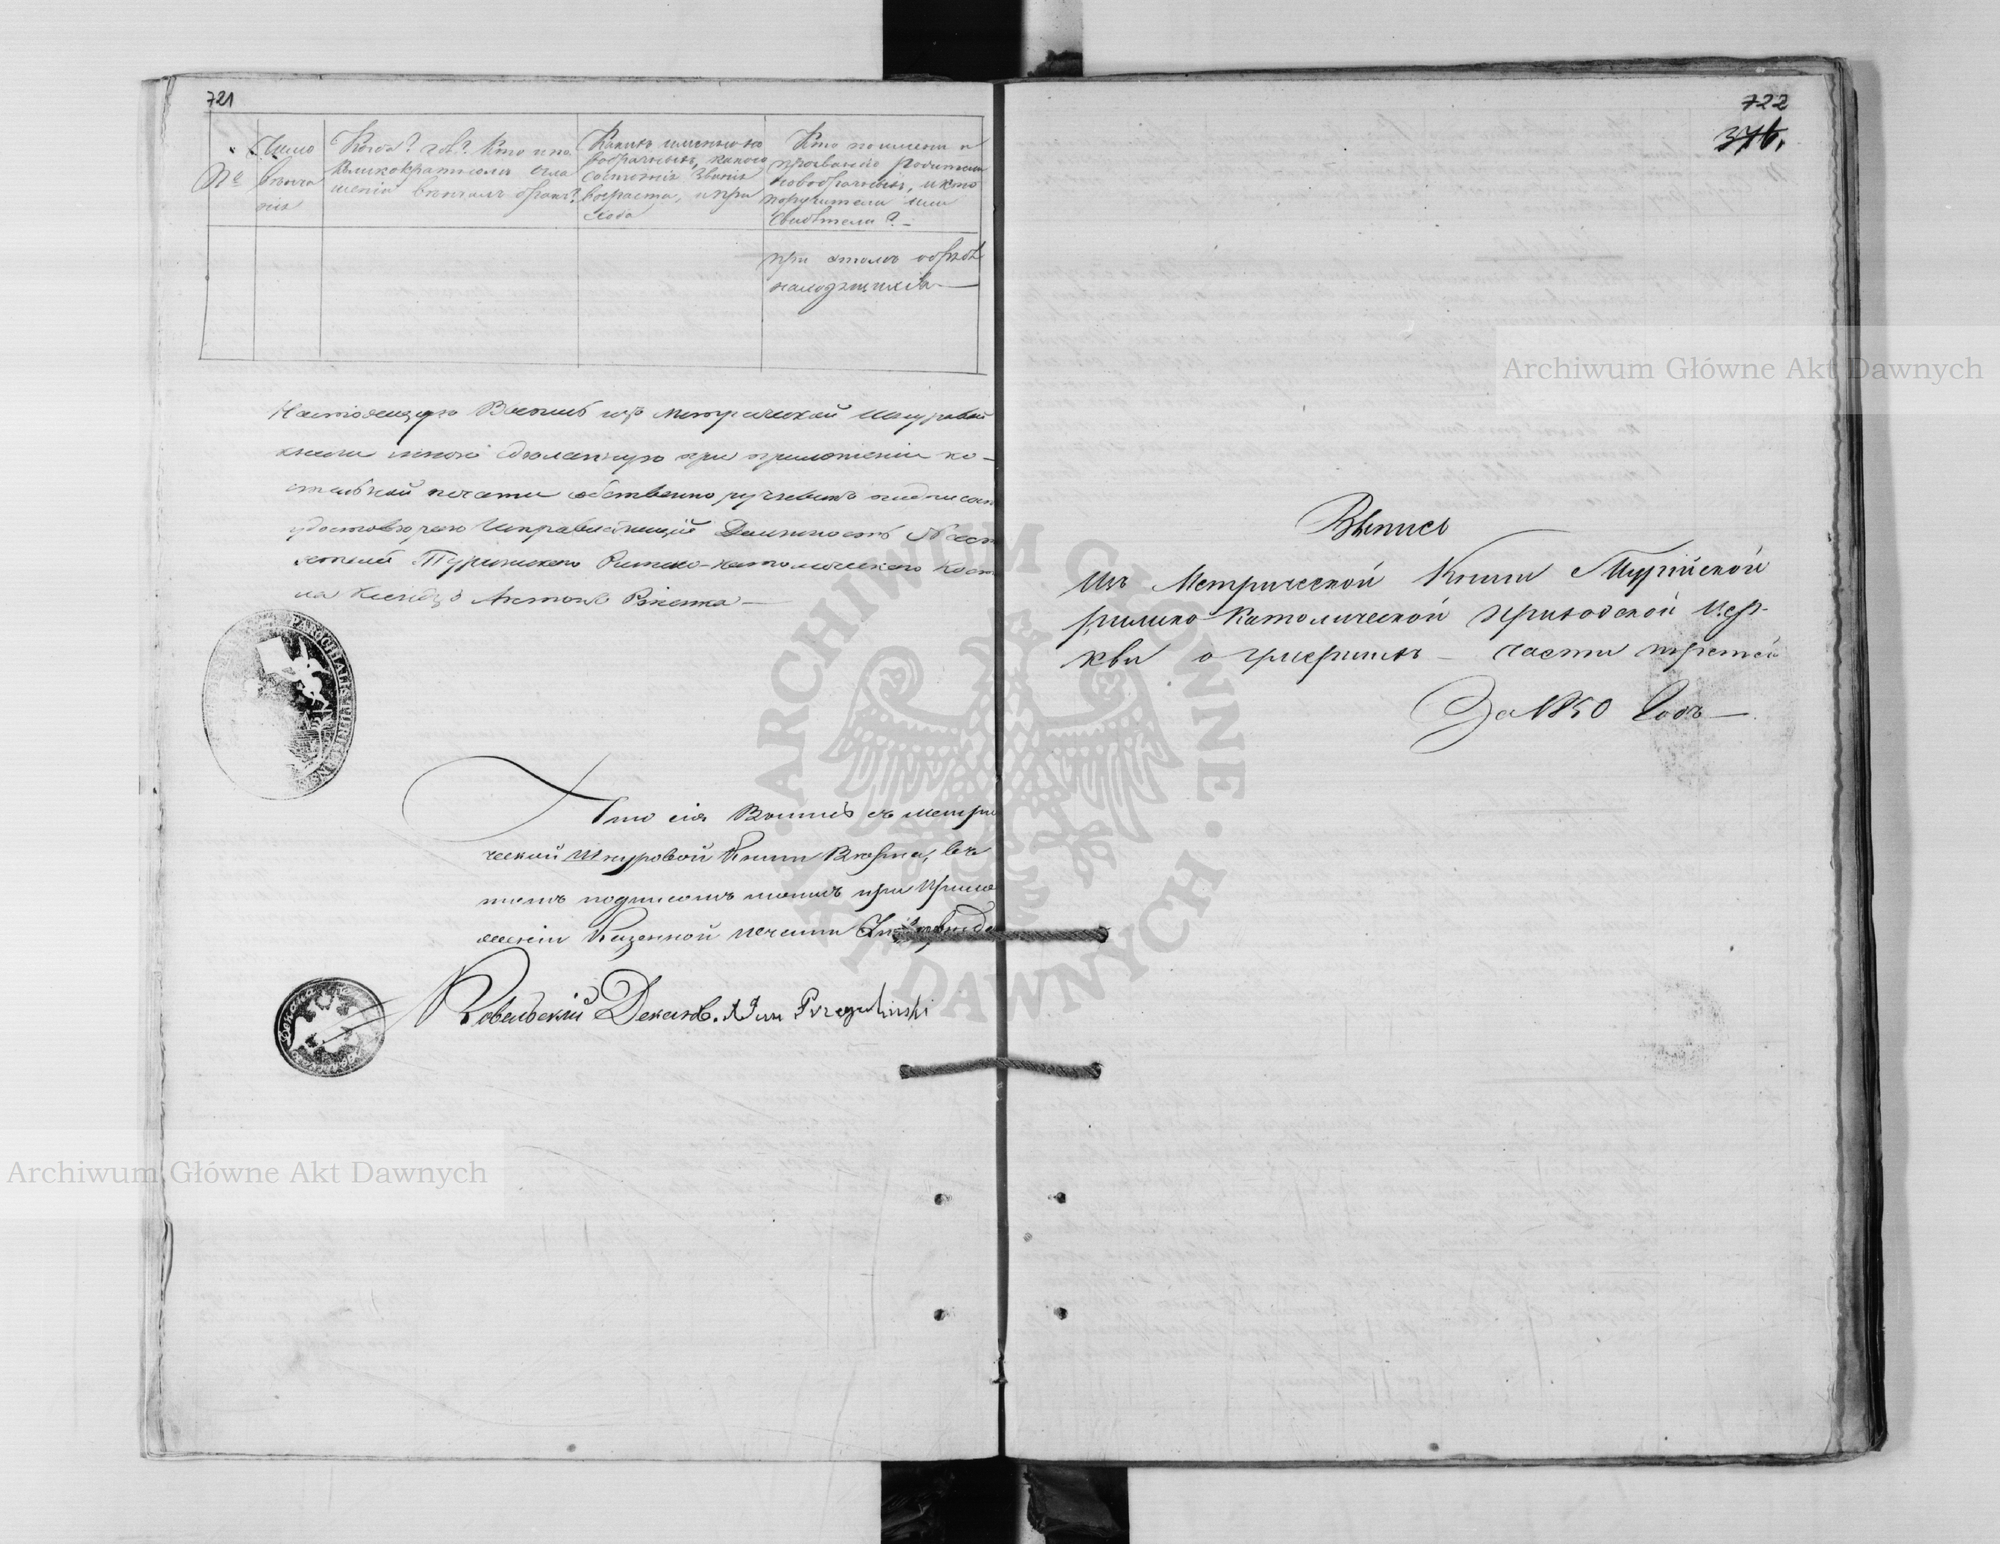 721
№
Число
венча
нія
Когда? где? Кто и по
коликократномъ огла
шеніи венчалъ бракъ?
Какихъ именно но
вобрачныхъ, какого
состоянія званія
возраста, и при
хода
Кто по имени и
прозванію родители
новобрачныхъ, и кто
поручители или
свидетели?
при этомъ обрядѣ
находящихся
Настоящую Выпись изъ метрической Шнуровой
книги мною сделанную при приложеніи ко-
стельной печати собственно ручнымъ подписомъ
удостоверяю Исправляющій Должность Насто
ятеля Турійского Римско-католического Косте
ла Ксендзъ Антоній
PAROCHIALIS TURIENS
Что сія Выпись съ метри
ческой Шнуровой Книги Взята, въ
томъ подписомъ моимъ при Прило
женіи Казенной печати
Ковельскій Деканъ. X Jan Przegaliński
722
376.
Выпись
Изъ Метрической Книги Турійской
римско Католической приходской Цер-
кви о умершихъ – части третей
За 1850 Годъ
ARCHIWUM GŁÓWNE AKT DAWNYCH
Archiwum Główne Akt Dawnych
Archiwum Główne Akt Dawnych